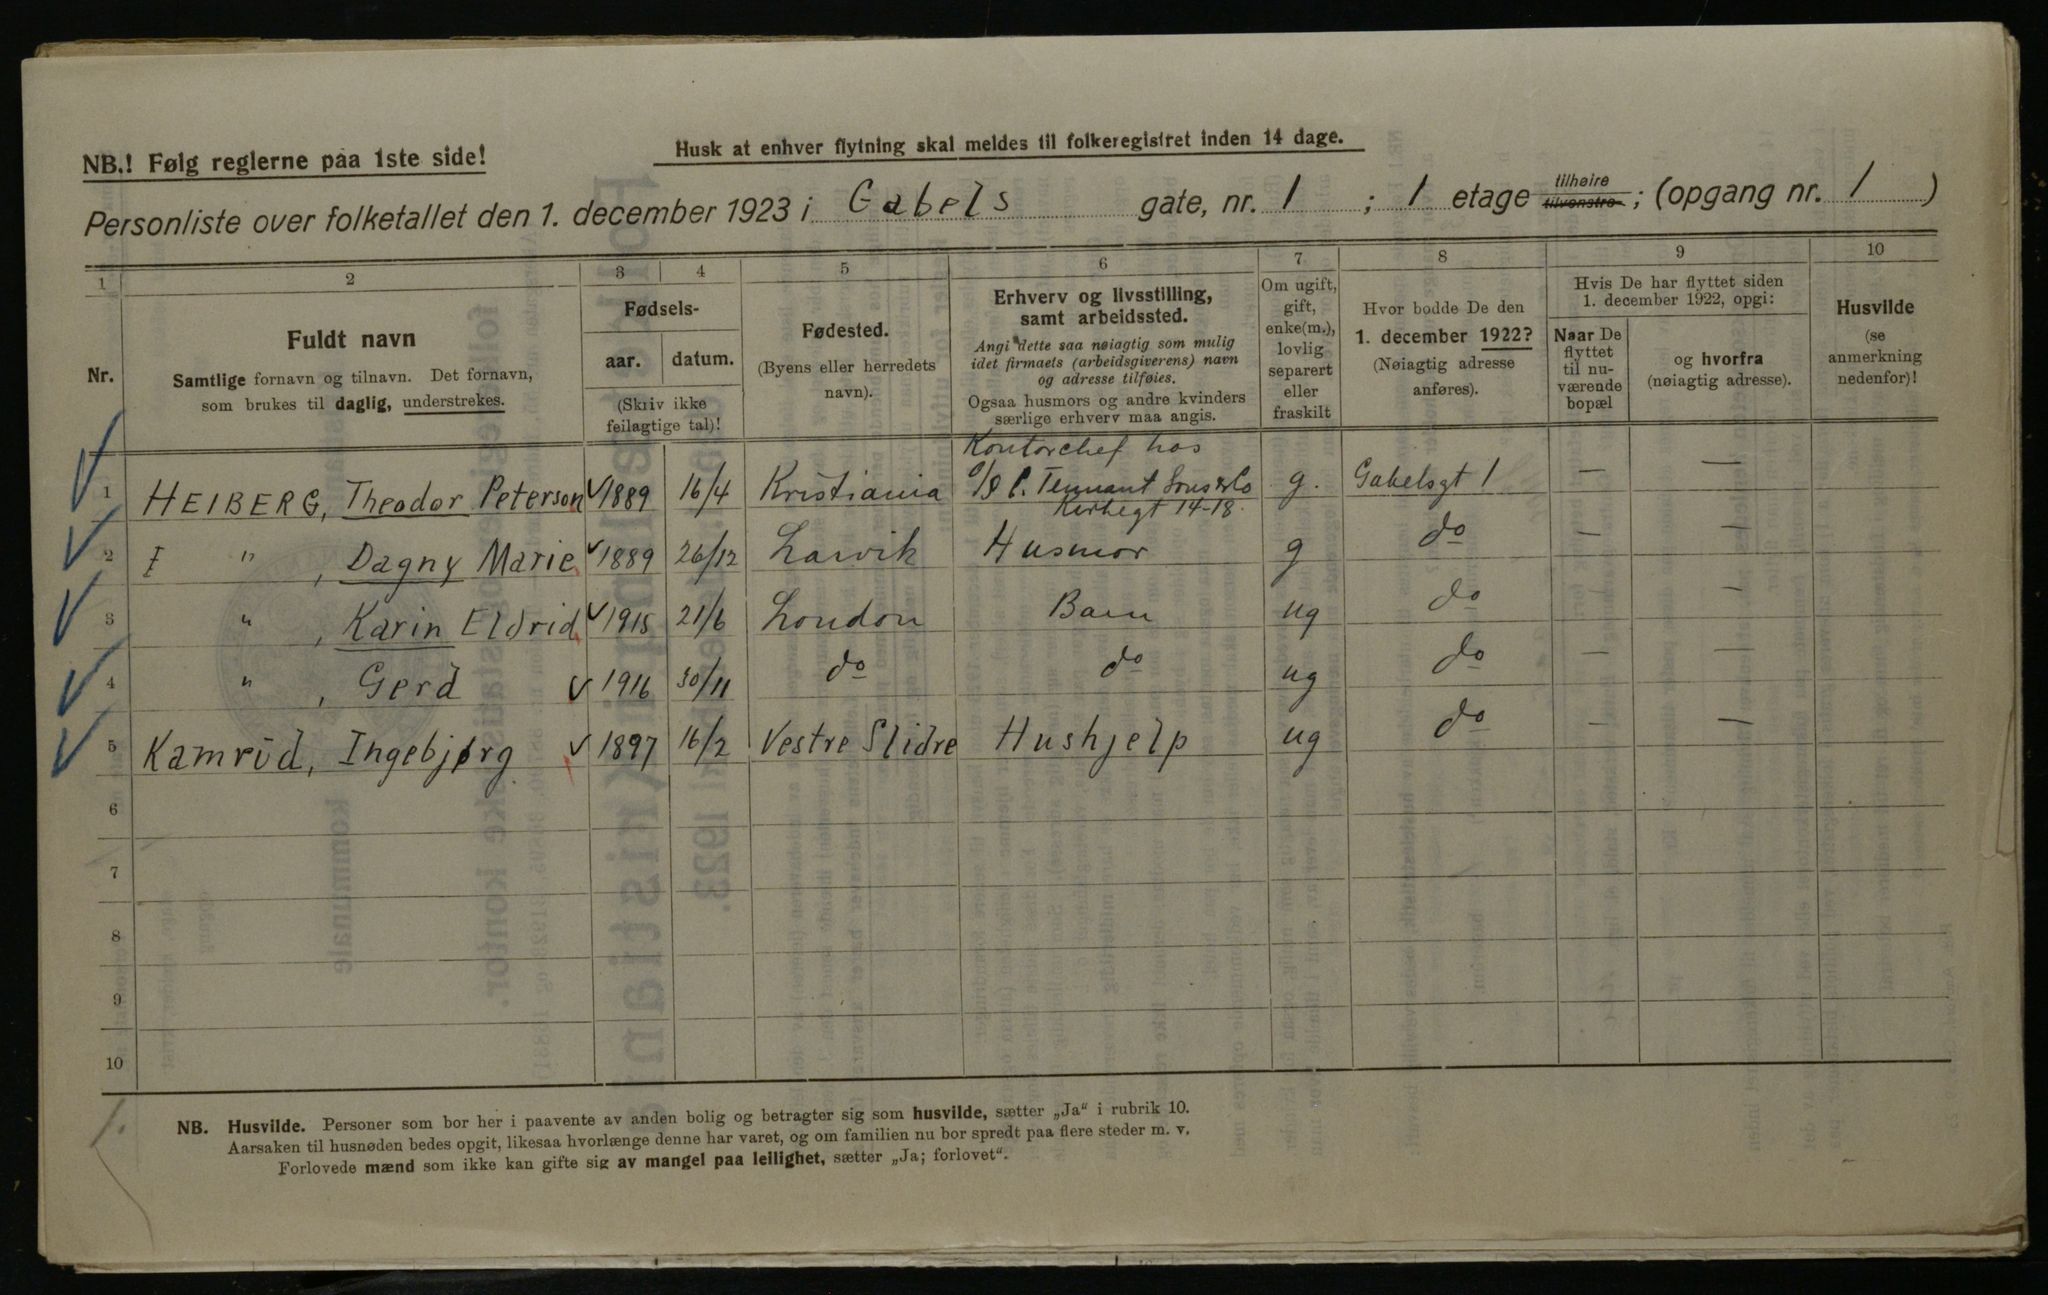 NB.! Følg reglerne paa 1ste side!
Husk at enhver flytning skal meldes til folkeregistret inden 14 dage.
Personliste over folketallet den 1. december 1923 i Gabels gate, nr. 1 ; 1 etage tilhøire tilvenstre ; (opgang nr. 1 )
1 2 3 4 5 6 7 8 9 10
Nr.
Fuldt navn
Samtlige fornavn og tilnavn. Det fornavn,
som brukes til daglig, understrekes.
Fødsels-
aar. datum.
(Skriv ikke
feilagtige tal)!
Fødested.
(Byens eller herredets
navn).
Erhverv og livsstilling,
samt arbeidssted.
Angi dette saa nøiagtig som mulig
idet firmaets (arbeidsgiverens) navn
og adresse tilføies.
Ogsaa husmors og andre kvinders
særlige erhverv maa angis.
Om ugift,
gift,
enke(m.),
lovlig
separert
eller
fraskilt
Hvor bodde De den
1. december 1922?
(Nøiagtig adresse
anføres).
Hvis De har flyttet siden
1. december 1922, opgi:
Naar De
flyttet
til nu-
værende
bopæl
og hvorfra
(nøiagtig adresse).
Husvilde
(se
anmerkning
nedenfor)!
Kontorchef hos
1 HEIBERG, Theodor Peterson 1889 16/4 Kristiania C. Tennant Sons & Co g. Gabelsgt 1 — —
Kirkegt 14-18.
2 " , Dagny Marie 1889 26/12 Larvik Husmor g do — —
3 " , Karin Eldrid 1915 21/6 London Barn ug do — —
4 " , Gerd 1916 30/11 do do ug do — —
5 Kamrud, Ingebjørg 1897 16/2 Vestre Slidre Hushjelp ug do — —
6
7
8
9
10
1.
NB. Husvilde. Personer som bor her i paavente av anden bolig og betragter sig som husvilde, sætter „Ja“ i rubrik 10.
Aarsaken til husnøden bedes opgit, likesaa hvorlænge denne har varet, og om familien nu bor spredt paa flere steder m. v.
Forlovede mænd som ikke kan gifte sig av mangel paa leilighet, sætter „Ja; forlovet“.